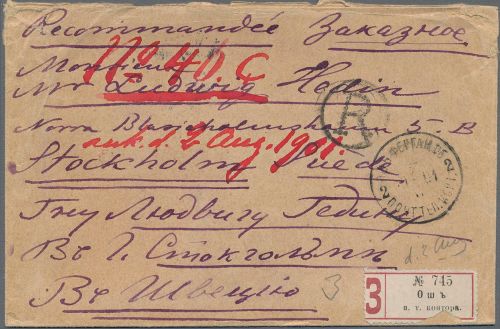 Recommandée Заказное.
Monsieur
No 40 C
Mr Ludwig Hedin
Norra Blasieholmshamnen 5. B
ank. d. 2 Aug. 1901.
Stockholm Suède
Гну Людвигу Гедину
Въ Г. Стокгольмъ
Въ Швецію
R
ФЕРГАН. ОБ.
d. 2 Aug
3
З
№ 745
Ошъ
п. т. контора.